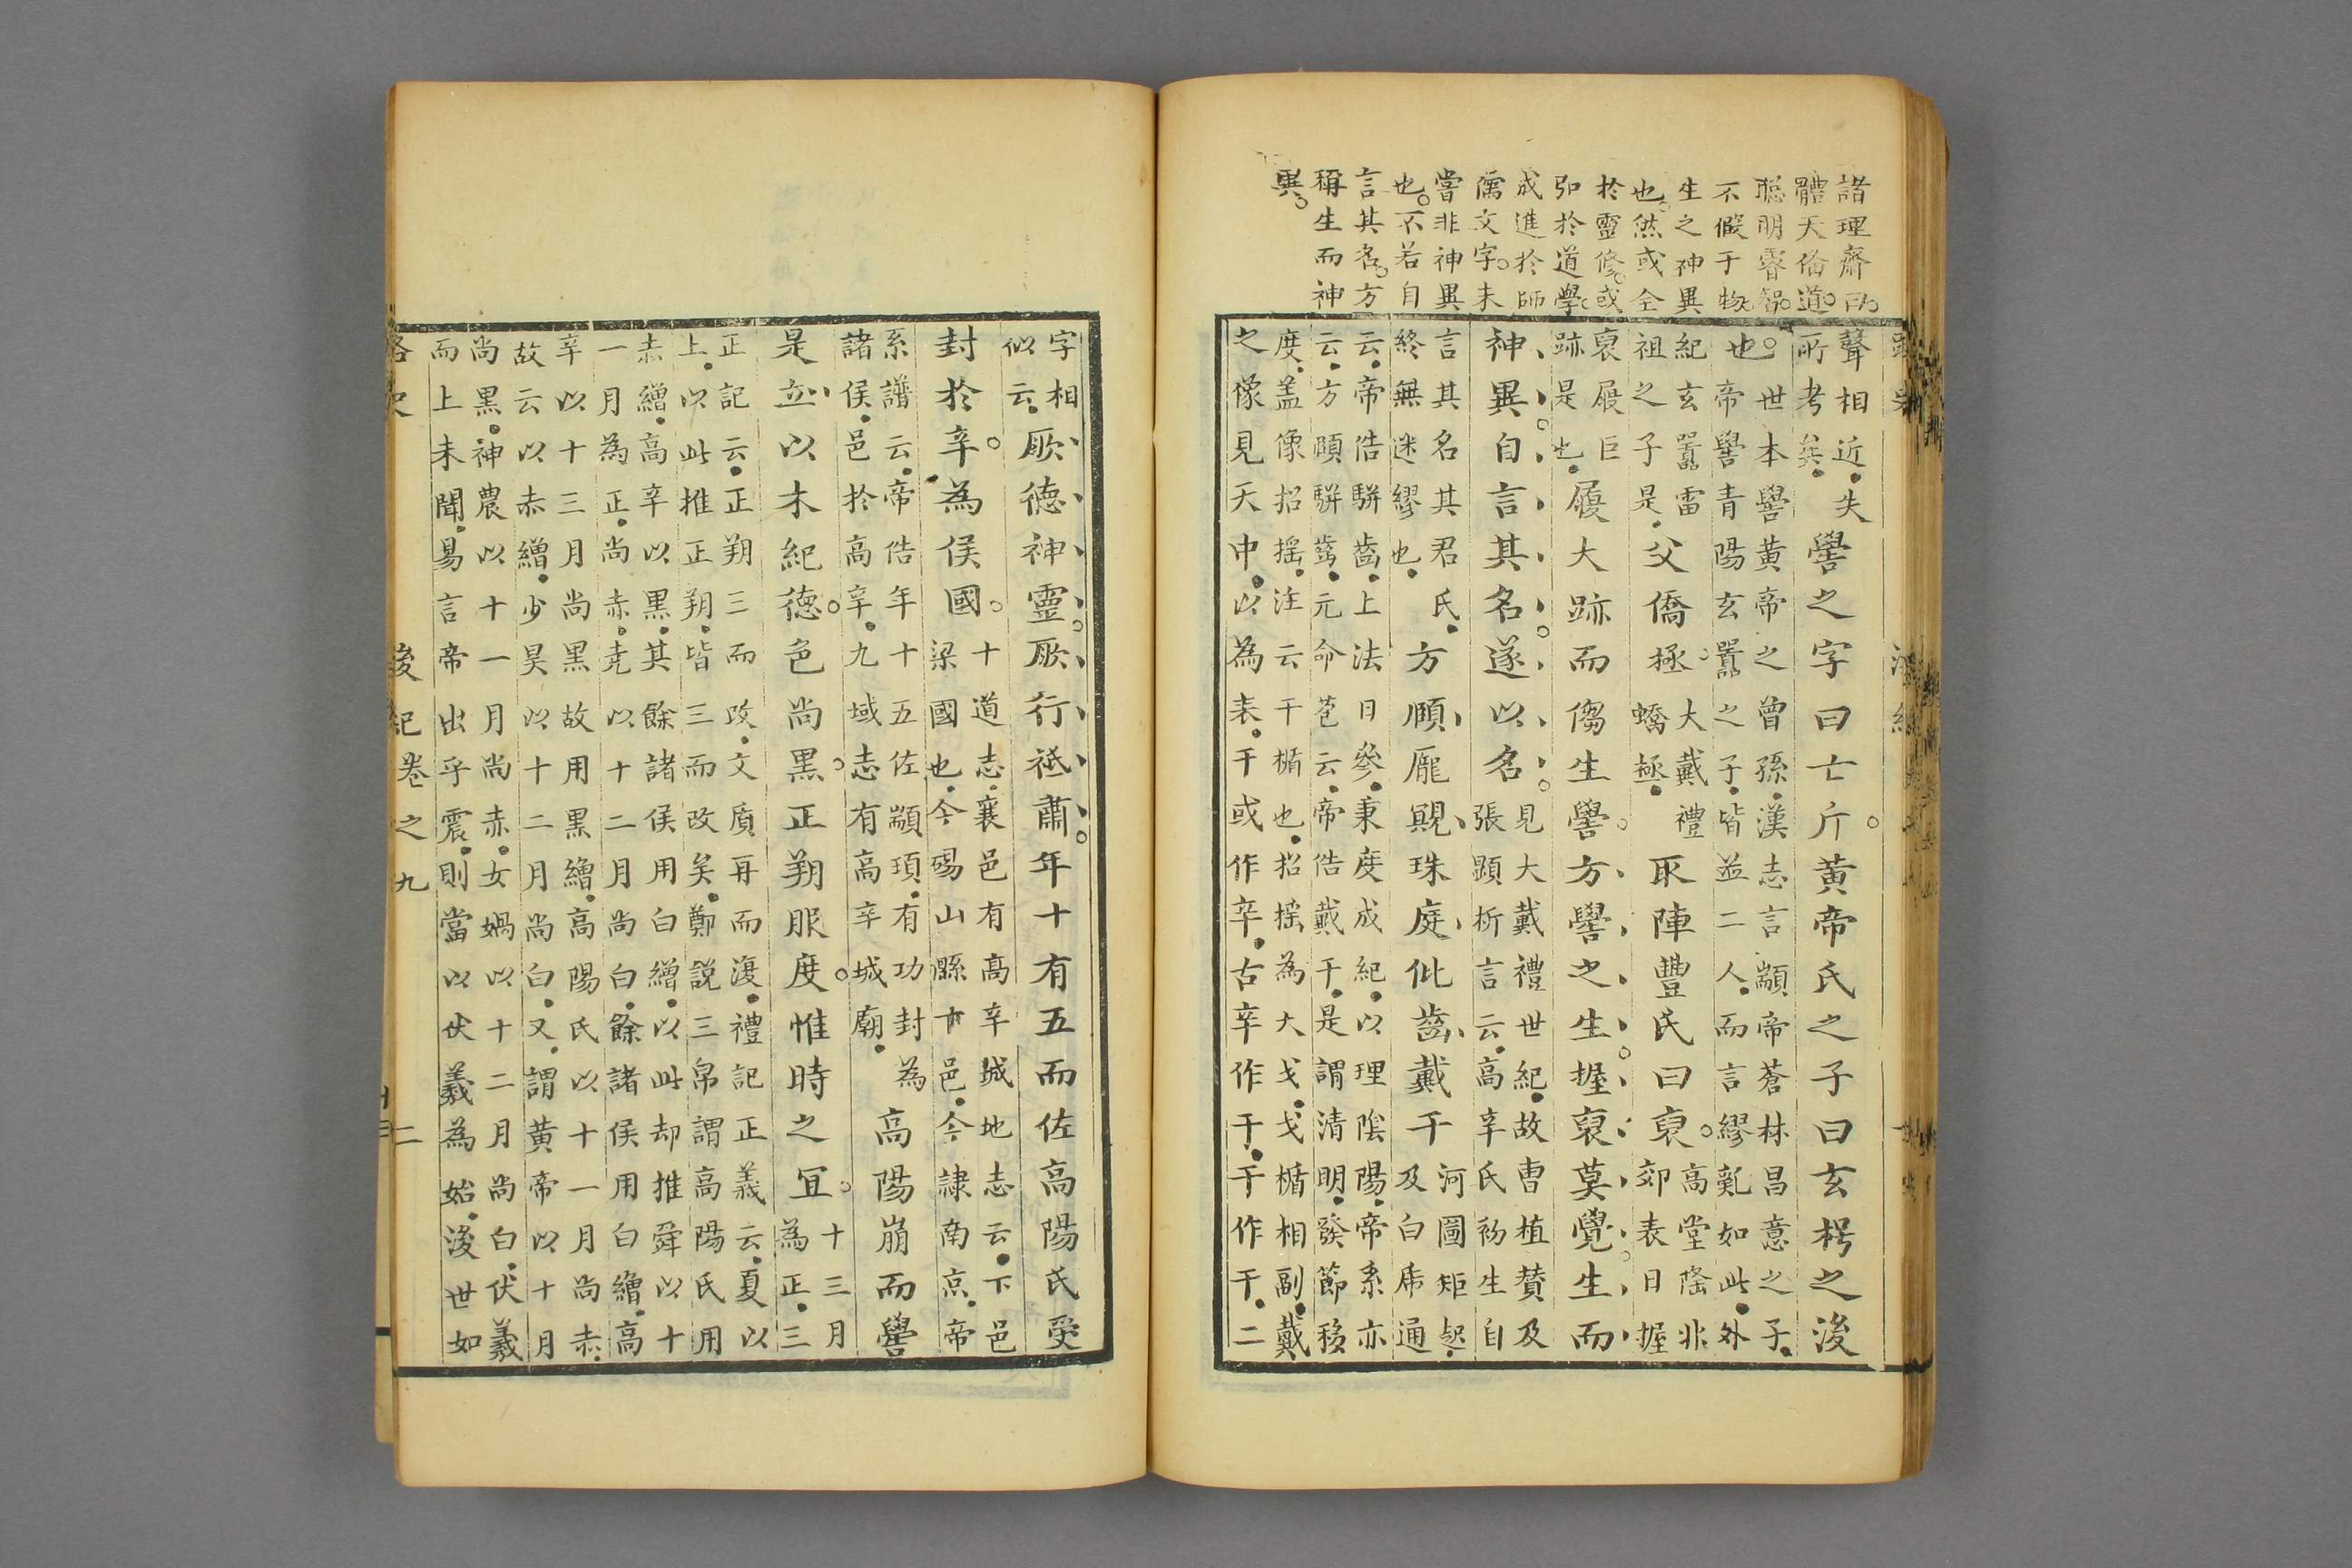 諸理齋曰
體天備道
聰明睿智
不假于物
生之神異
也然或全
於靈修或
弸於道學
成進於師
儒文字未
嘗非神異
也不若自
言其名方
稱生而神
異
聲相近失
所考葬
嚳之字曰亡斤黄帝氏之子曰玄枵之後
世本嚳黄帝之曾孫漢志言顓帝蒼林昌意之子
也帝嚳青陽玄囂之子皆並二人而言繆亂如此外
紀玄囂雷
祖之子是
父僑極
大戴禮
蟜極
取陣豐氏曰裒
高堂隆北
郊表曰握
裒履巨
跡是也
履大跡而㑳生嚳方嚳之生握裒莫覺生而
神異自言其名遂以名
見大戴禮世紀故曹植賛及
張顕析言云高辛氏初生自
言其名其君氏
終無迷繆也
方頤龎覭珠庭仳齒戴干
河圖矩起
及白虎通
云帝俈騈齒上法日參秉度成紀以理陰陽帝系亦
云方頤騈齒元命苞云帝俈戴干是謂清明發節移
度盖像招摇注云干楯也招摇為大戈戈楯相副戴
之像見天中以為表干或作辛古辛作干干作干二
字相
似云
厥德神靈厥行祗肅年十有五而佐高陽氏受
封於辛為侯國
十道志襄邑有高辛城地志云下邑
梁國也今碭山縣下邑今隷南京帝
系譜云帝俈年十五佐顓頊有功封為
諸侯邑於高辛九域志有高辛城廟
高陽崩而嚳
是立以木紀德色尚黑正朔服度惟時之冝
十三月
為正三
正記云正朔三而改文質再而復禮記正義云夏以
上以此推正朔皆三而改矣鄭説三帛謂高陽氏用
赤繒高辛以黑其餘諸侯用白繒以此却推舜以十
一月為正尚赤尭以十二月尚白餘諸侯用白繒高
辛以十三月尚黑故用黑繒高陽氏以十一月尚赤
故云以赤繒少昊以十二月尚白又謂黄帝以十月
尚黑神農以十一月尚赤女媧以十二月尚白伏羲
而上未聞易言帝出乎震則當以伏羲為始後世如
路史
後紀卷之九
二